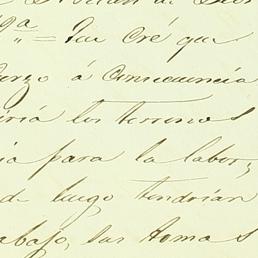 9ª = Que Cré que
á Consecuencia
iria los terrenos
ia para la labor,
d luego tendrian
abajo, las tomas